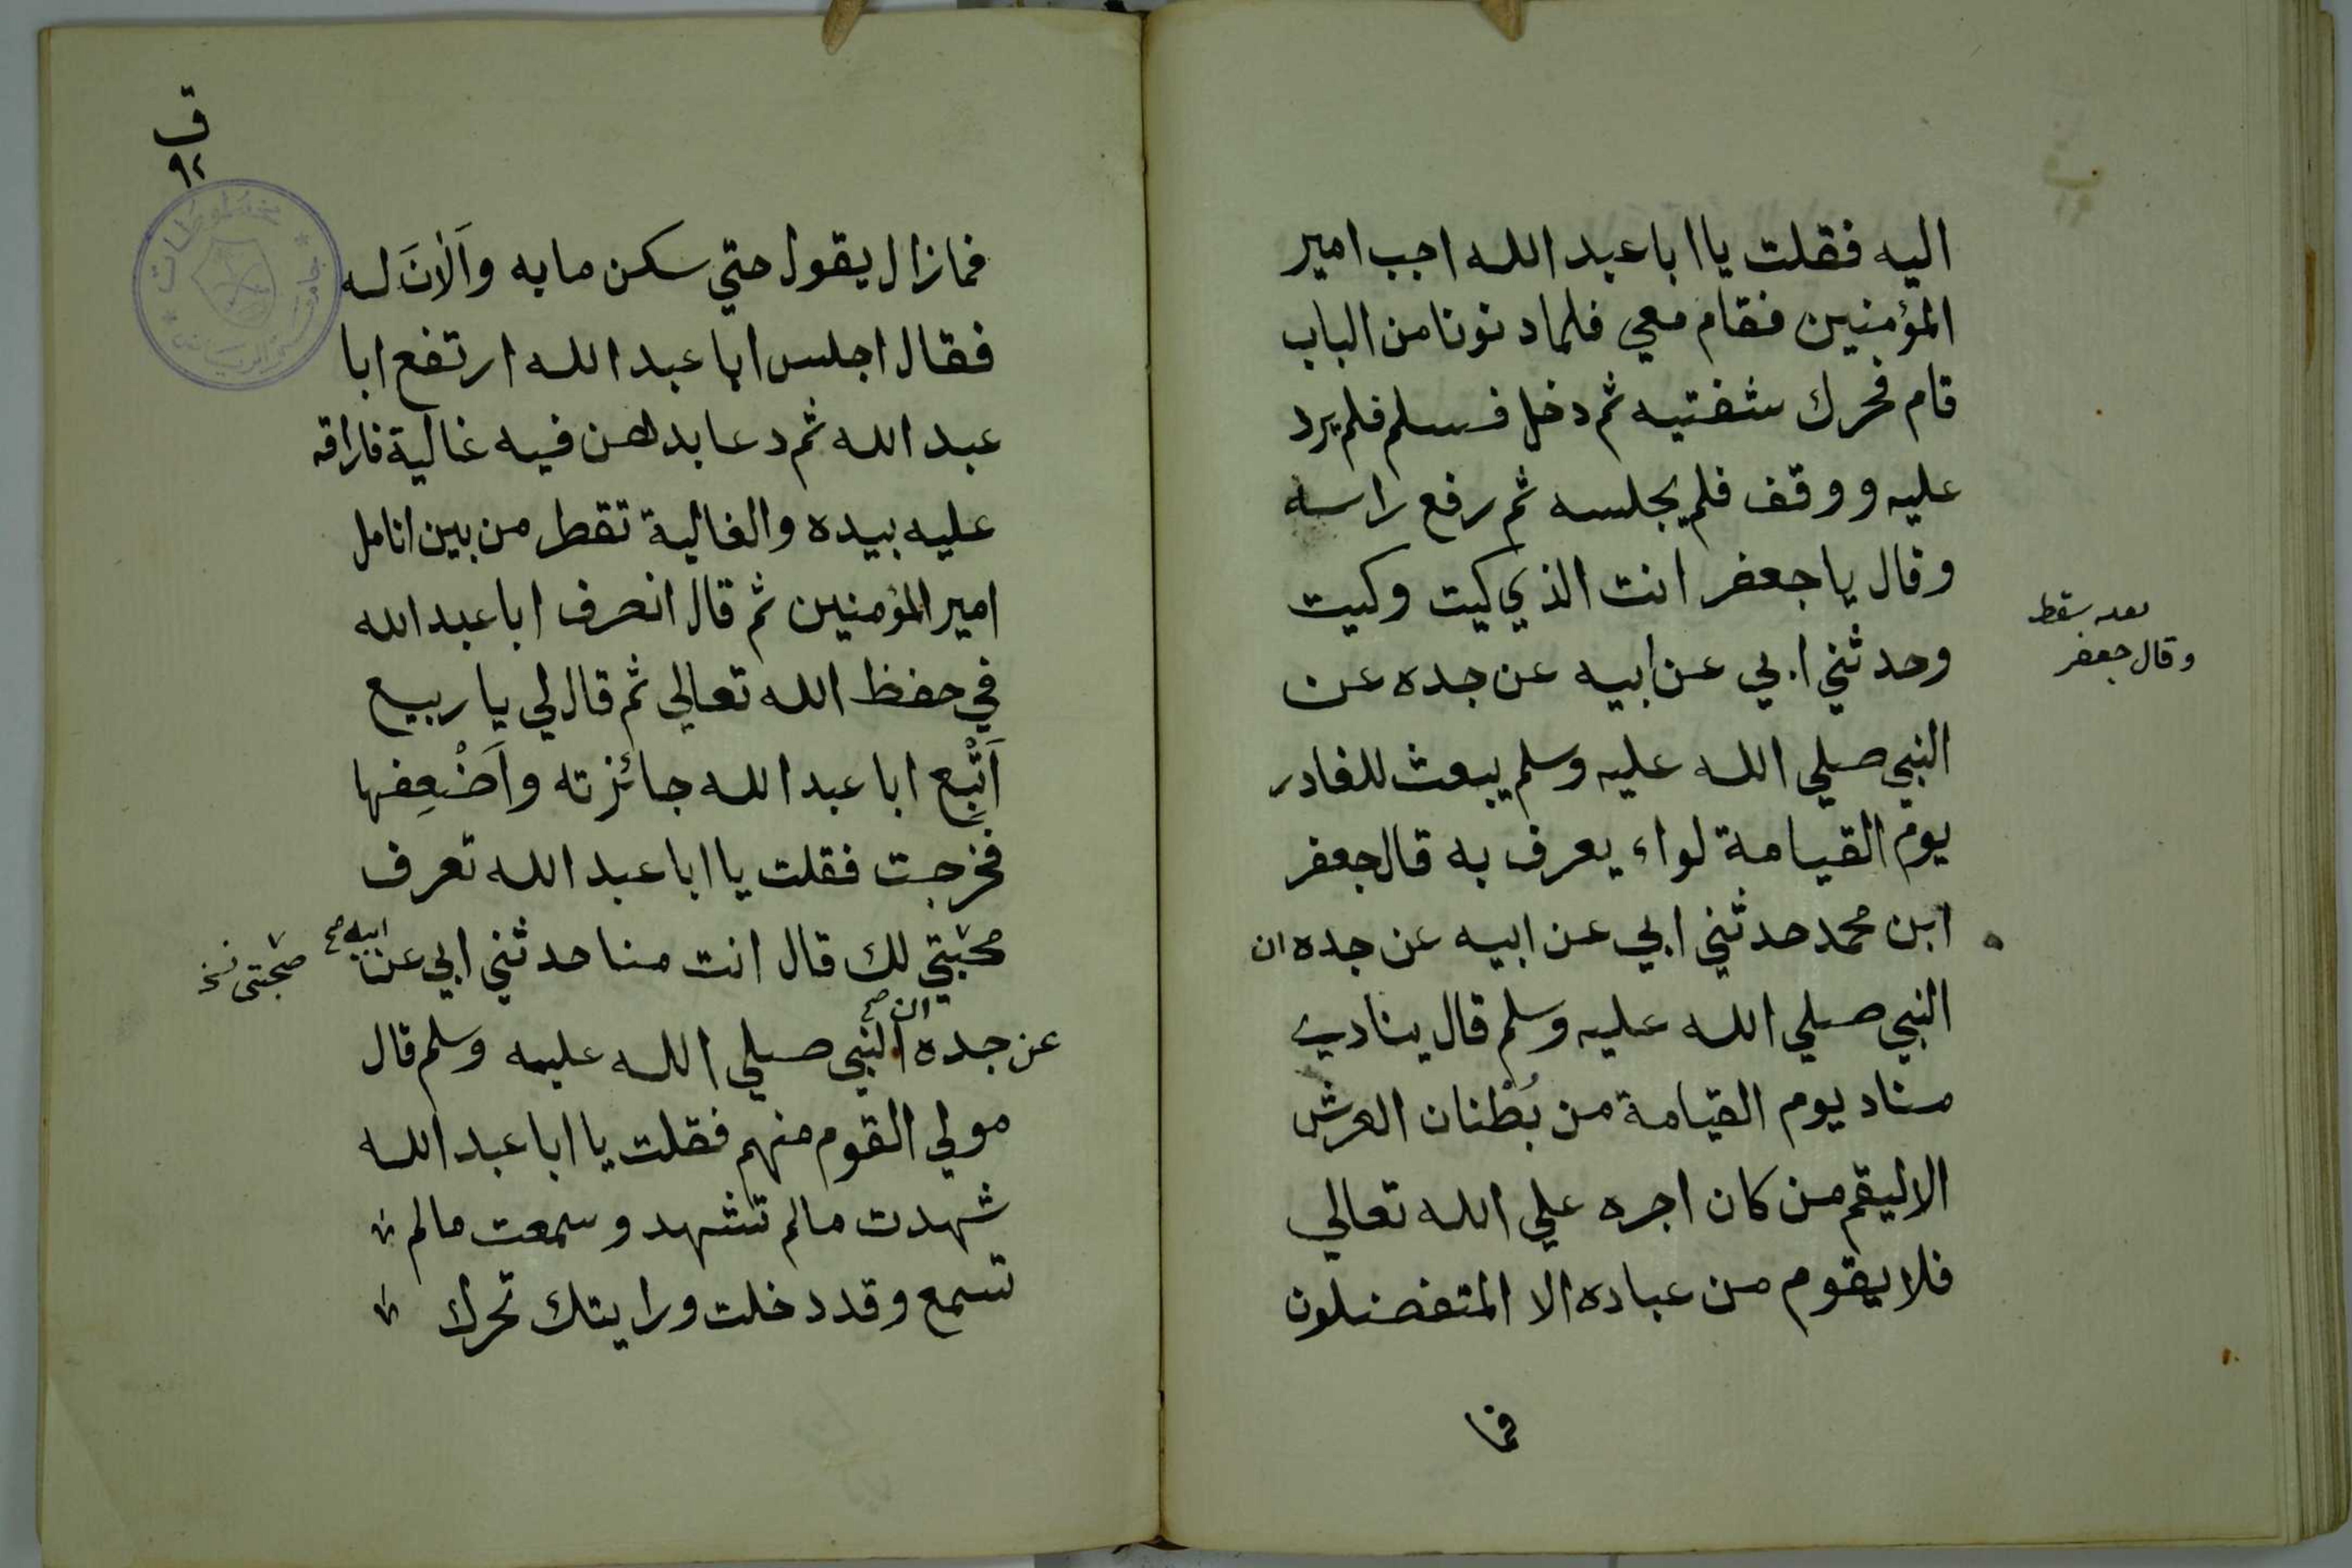 اليه فقلت يا ابا عبد الله اجب امير
المؤمنين فقام معي فلما دنونا من الباب
قام فحرك شفتيه ثم دخل فسلم فلم يرد
عليه ووقف فلم يجلسه ثم رفع راسه
وقال يا جعفر انت الذي كيت وكيت
وحدثني ابي عن ابيه عن جده عن
النبي صلي الله عليه وسلم يبعث للغادر
يوم القيامة لواء يعرف به قال جعفر
ابن محمد حدثني ابي عن ابيه عن جده ان
النبي صلي الله عليه وسلم قال ينادي
مناد يوم القيامة من بُطنان العرش
الا ليقم من كان اجره علي الله تعالي
فلا يقوم من عباده الا المتفضلون
فما
سقط
وقال جعفر
ق
٩٢
فما زال يقول حتي سكن ما به وَاَلَانَ له
فقال اجلس ابا عبد الله ارتفع ابا
عبد الله ثم دعا بدهن فيه غالية فاراقه
عليه بيده والغالية تقطر من بين انامل
امير المؤمنين ثم قال انصرف ابا عبد الله
في حفظ الله تعالي ثم قال لي يا ربيع
اَتْبِع ابا عبد الله جائزته واَضْعِفها
فخرجت فقلت يا ابا عبد الله تعرف
محبتي لك قال انت منا حدثني ابي عن ابيه صح
صحبتي نخ
عن جده ان صح النبي صلي الله عليه وسلم قال
مولي القوم منهم فقلت يا ابا عبد الله
شهدت مالم تشهد وسمعت مالم
تسمع وقد دخلت ورايتك تحرك